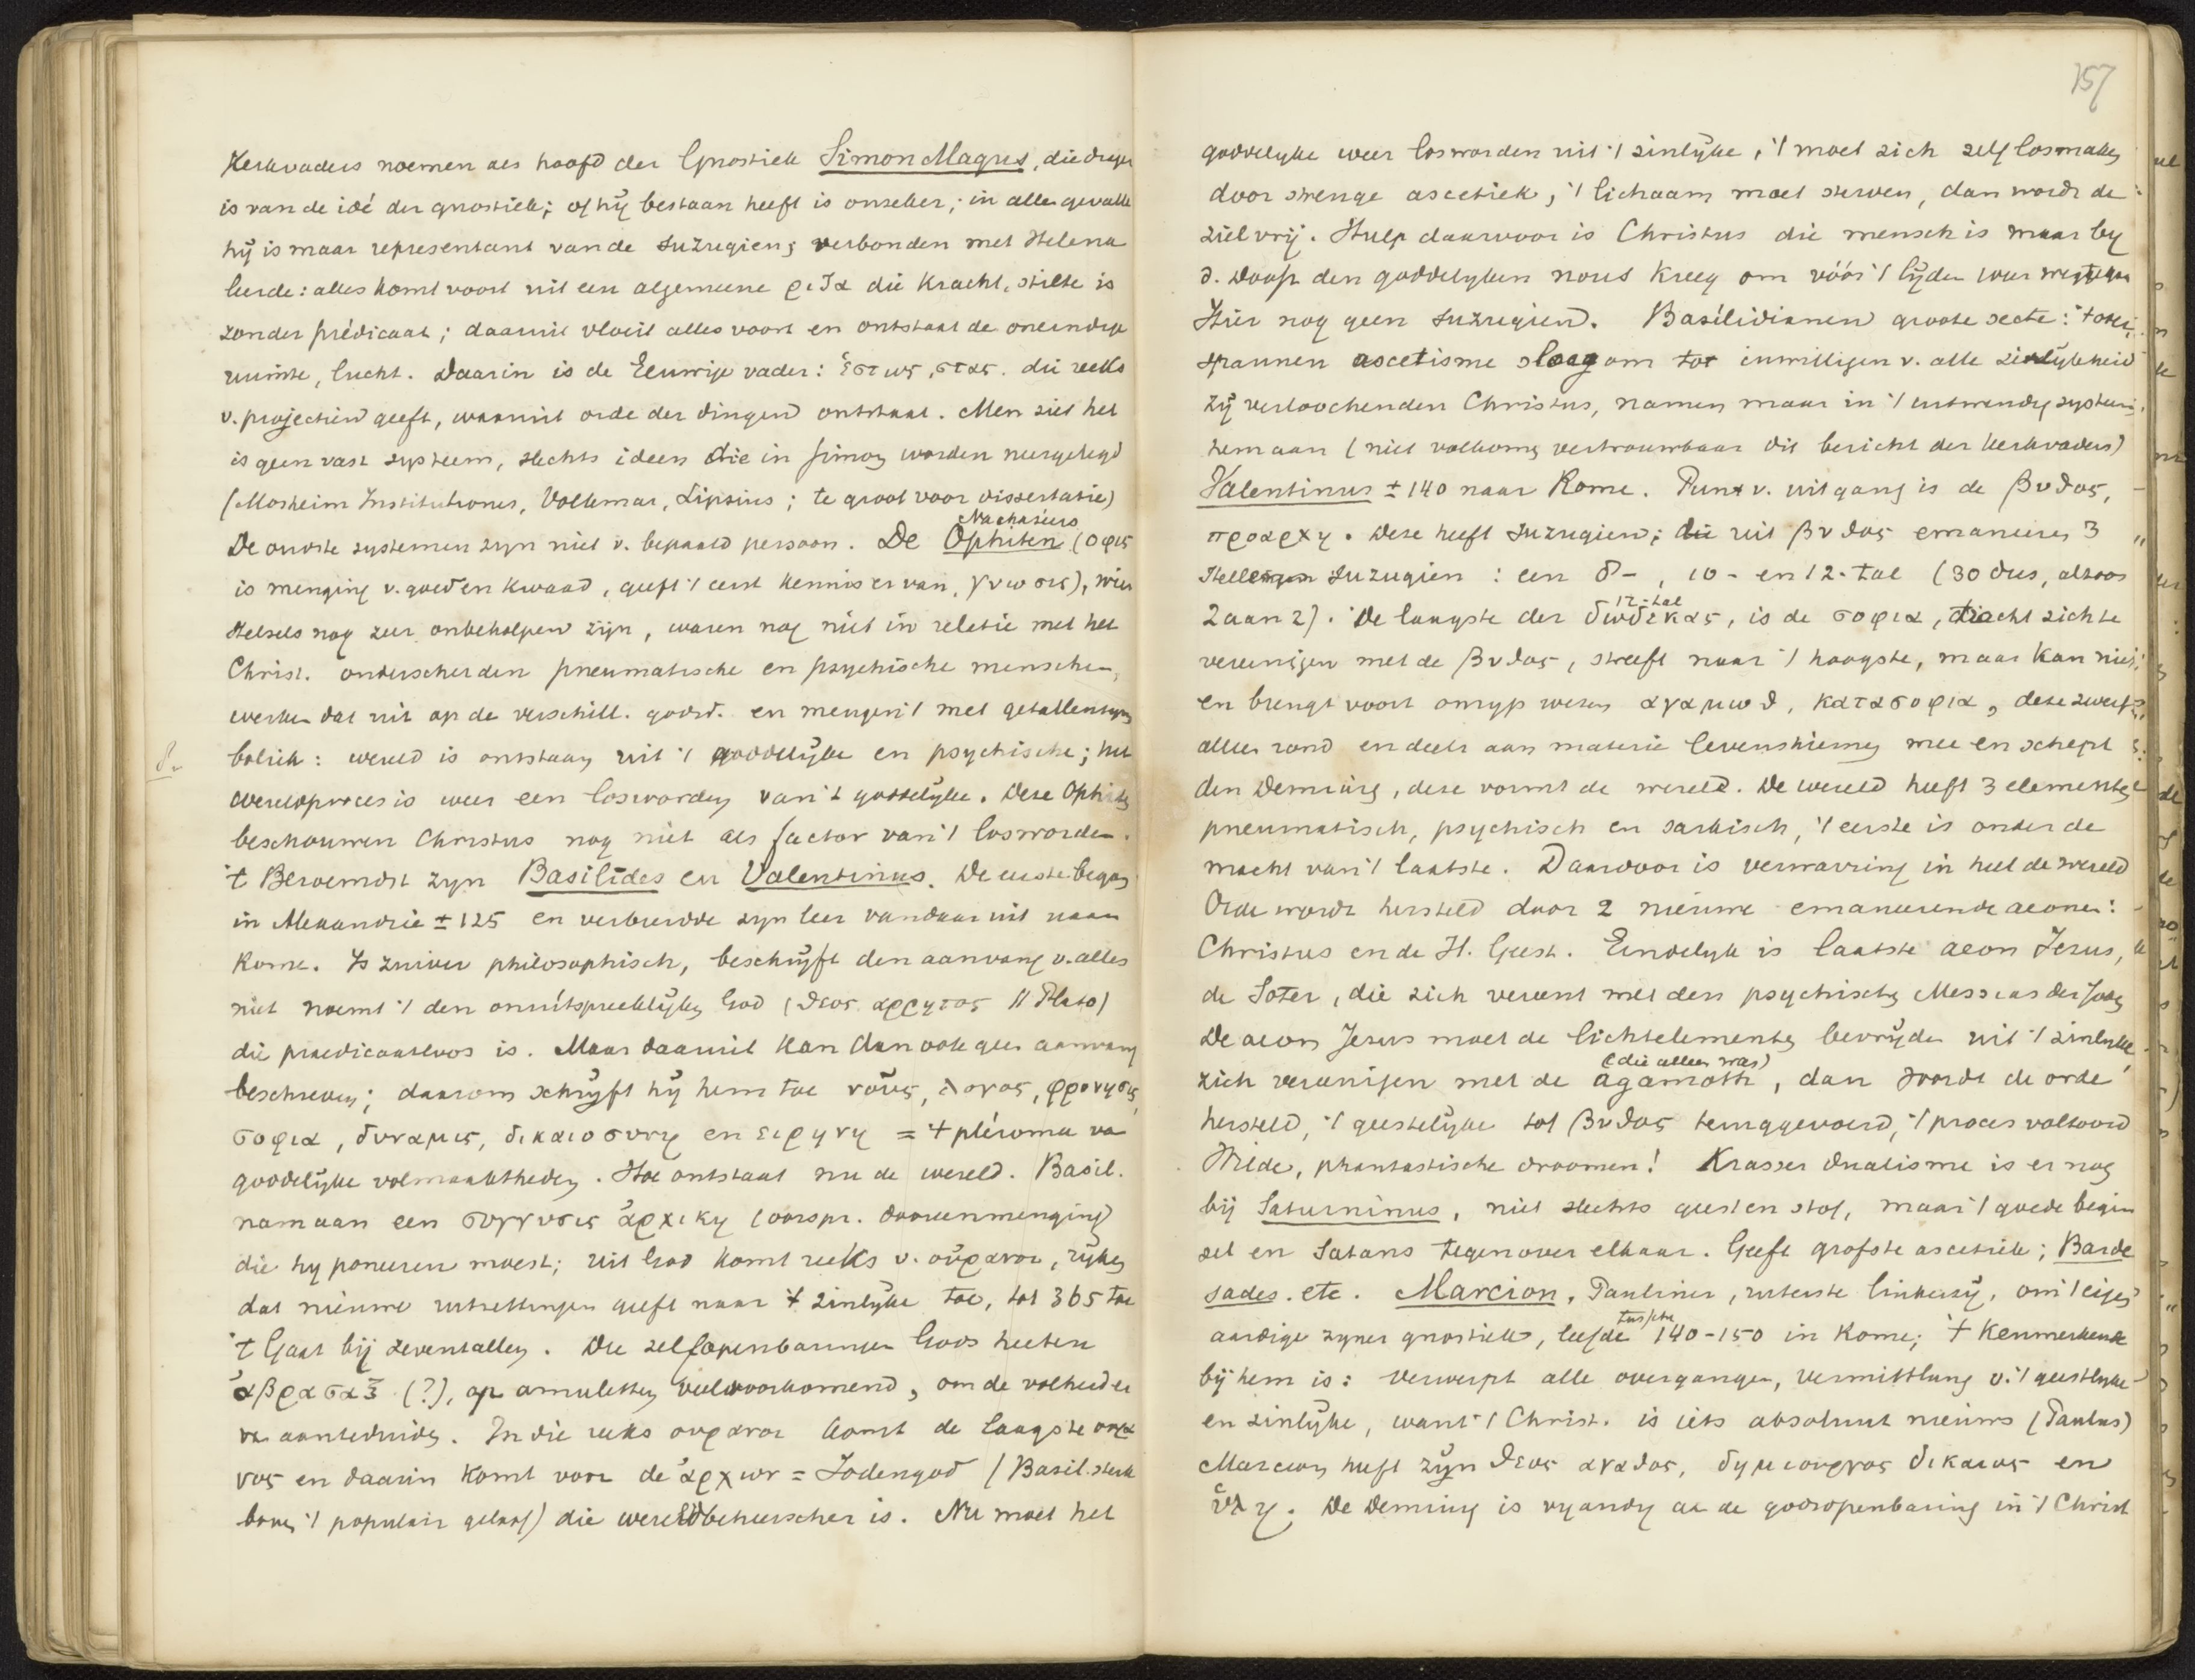 Kerkvaders noemen als hoofd der Gnostiek Simon Magus, die drager
is van de idé der gnostiek; of hij bestaan heeft is onzeker; in alle gevalle
hij is maar representant van de suzugien; verbonden met Helena
leerde: alles komt voort uit een algemeene ριζα die kracht, stilte is
zonder prédicaat; daaruit vloeit alles voort en ontstaat de oneindige
ruimte, lucht. Daarin is de Eeuwige vader: ἑστως, στας. die reeks
v. projectien geeft, waaruit orde der dingen ontstaat. Men ziet het
is geen vast systeem, slechts ideen die in Simon worden neergelegd
(Mosheim Institutiones, Volkmar, Lipsius; te groot voor dissertatie)
Nachasiers
De oudste systemen zyn niet v. bepaald persoon. De Ophiten (οφις
is menging v. goed en kwaad, geeft 't eerst kennis er van, γνωσις), wier
stelsels nog zeer onbeholpen zijn, waren nog niet in relatie met het
Christ. onderscheiden pneumatische en psychische menschen,
werken dat uit op de verschill. godsd. en mengen 't met getallensym
boliek: wereld is ontstaan uit 't goddelijke en psychische; het
wereldproces is weer een losworden van 't goddelijke. Deze Ophiten
beschouwen Christus nog niet als factor van 't losworden.
't Beroemdst zyn Basilides en Valentinus. De eerste begon
in Alexandrie ± 125 en verbreidde zyn leer vandaar uit naar
Rome. Is zuiver philosophisch, beschrijft den aanvang v. alles
niet noemt 't den onuitspreeklijken God (θεος αρρητος // Plato)
die praedicaatloos is. Maar daaruit kan dan ook geen aanvang
beschreven; daarom schrijft hij hem toe νοῦς, λογος, φρονησις,
σοφια, δυναμις, δικαιοσυνη en ειρηνη = 't plèroma va
goddelijke volmaaktheden. Hoe ontstaat nu de wereld. Basil.
nam aan een συγχυσις ἀρχικη (oorspr. dooreenmenging)
die hy poneeren moest; uit God komt reeks v. οὐρανοι, rijken
dat nieuwe uitzettingen geeft naar 't zinlyke toe, tot 365 toe
't Gaat bij zeventallen. Die zelfopenbaringen Gods heeten
ἀβρασαξ (?), op amuletten veel voorkomend, om de volheid er
van aanteduiden. In die reeks ουρανοι komt de laagste ουρα
νος en daarin komt voor de ἀρχων = Jodengod (Basil. sterk
boven 't populair geloof) die wereldbeheerscher is. Nu moet het
157
goddelyke weer losworden uit 't zinlijke; 't moet zich zelf losmaken
door strenge ascetiek, 't lichaam moet sterven, dan wordt de
ziel vrij. Hulp daarvoor is Christus die mensch is maar by
d. doop den goddelyken nous kreeg om vóór 't lijden weer wegtegaan
Hier nog geen suzugien. Basilidianen groote secte: 't over
spannen ascetisme sloeg om tot inwilligen v. alle zinlijkheid
zij verloochenden Christus, namen maar in 't uitwendig systeem
hem aan (niet volkomen vertrouwbaar dit bericht der kerkvaders)
Valentinus ± 140 naar Rome. Punt v. uitgang is de βυθος,
προαρχη. Deze heeft suzugien; die uit βυθος emaneeren 3
suzugien: een 8-, 10- en 12-tal (30 dus, altoos
12-tal
2 aan 2). De laagste der δωδεκας, is de σοφια, tracht zich te
vereenigen met de βυθος, streeft naar 't hoogste, maar kan niet
en brengt voort onryp wezen αχαμωθ, κατασοφια, deze zweeft
alleen rond en deelt aan materie levenskiemen mee en schept
den Demiurg, deze vormt de wereld. De wereld heeft 3 elementen
pneumatisch, psychisch en sarkisch, 't eerste is onder de
macht van 't laatste. Daardoor is verwarring in heel de wereld
Orde wordt hersteld door 2 nieuwe emaneerende aeonen:
Christus en de H. Geest. Eindelyk is laatste aeon Jezus,
de Soter, die zich vereent met den psychischen Messias der Joden
De aeon Jezus moet de lichtelementen bevrijden uit 't zinlyke,
(die alleen was)
zich vereenigen met de agamoth, dan wordt de orde
hersteld, 't geestelijke tot βυθος teruggevoerd, 't proces voltooid
Wilde, phantastische droomen! Krasser dualisme is er nog
bij Saturninus, niet slechts geest en stof, maar 't goede begin
sel en Satans tegenover elkaar. Geeft grofste ascetiek; Barde
sades. etc. Marcion, Pauliner, uiterste linkerzij, om 't eigen
tusschen
aardige zyner gnostiek, leefde 140-150 in Rome; 't Kenmerkende
bij hem is: verwerpt alle overgangen, vermittlung v. 't geestlyke
en zinlijke, want 't Christ. is iets absoluut nieuws (Paulus)
Marcion heeft zijn θεος αγαθος, δημιουργος δικαιος en
ὑλη. De Demiurg is vyandig aan de godsopenbaring in 't Christ